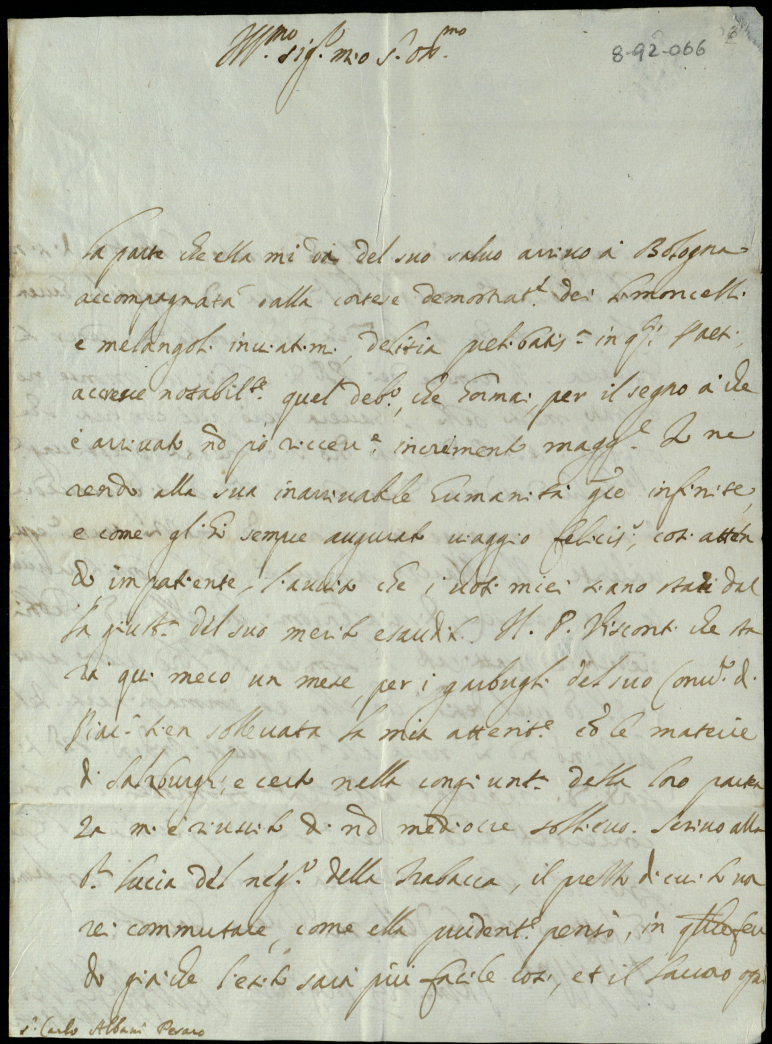 Ill.mo sig.r mio s.r oss.mo
8-92-066
La parte che ella mi dà del suo salvo arrivo à Bologna
accompagnata dalla cortese demostrat.e dei limoncelli
e melangoli inviatimi, delitia in q.ti Paesi,
accresce notabilm.te quel deb.o, che hormai per il segno à che
è arrivato nõ pò ricever.e incremento magg.re Io ne
rendo alla sua inarrivabile humanità gr̃e infinite,
e come gli hò sempre augurato viaggio felicis.o, così atten
do impatiente l'aviso che i voti miei siano stati dal
la giust.a del suo merito esauditi. Il P. Visconti che sta
rà qui meco un mese, per i garbugli del suo Conv.o di
tien sollevata la mia attent.e cõ le materie
di Salzburgh, e certo nella congiunt.a della loro parten
za mi è riuscito di nõ mediocre sollievo. Scrivo alla
S.ra Lucia del neg.o della trabacca, il prestito di cui io vor
rei commutare, come ella prudent.e pensò, in
do già che l'esito sarà più facile così, et il lavoro
s.r Carlo Albani Pesaro